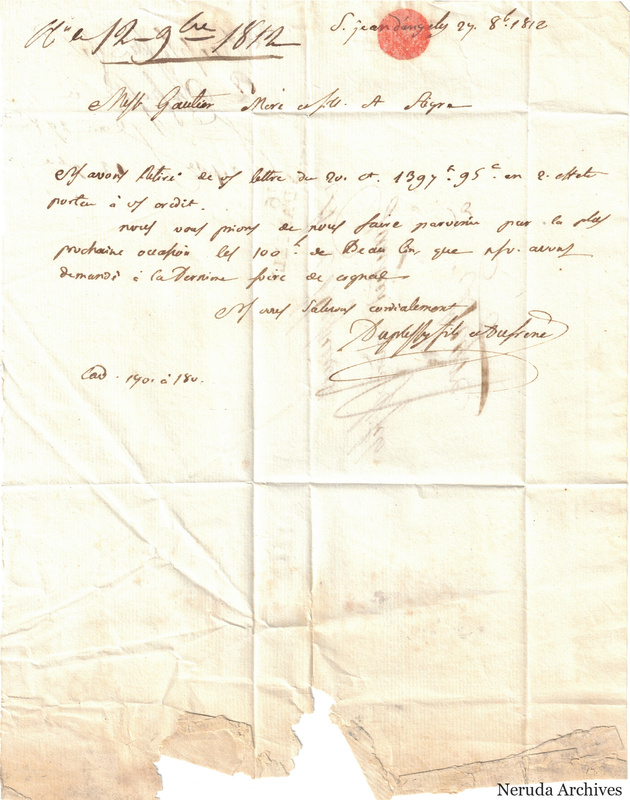 12 9bre 1812
St. jean d'angely 27. 8bre 1812
Messrs Gautier Mère et fils A
Ns avons retiré de vs lettre du 20. ct. 1397 f 95 c en 2. effets
portés à vs crédit.
nous vous prions de nous faire parvenir par la plus
prochaine occasion les 100 de Beau que ns avons
demandé à la Dernière foire de cognac
Ns vous saluons cordialement
Duplessy fils et Dufrene
Cad. 170. à 180.
Neruda Archives